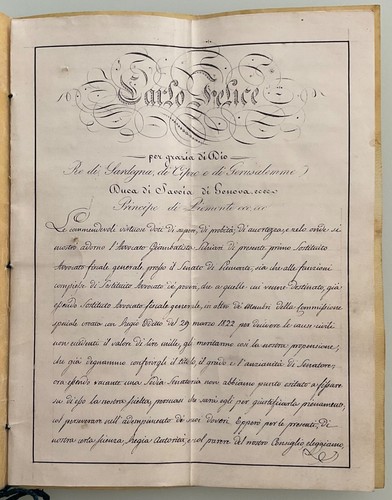 Carlo Felice
per grazia di Dio
Re di Sardegna, di Cipro e di Gerusalemme,
Duca di Savoia di Genova ecc ecc
Principe di Piemonte ecc ecc
Le commendevoli virtuose doti di saper, di probità, di accortezza, e zelo onde si
mostrò adorno l'Avvocato Giambatista di presente primo Sostituto
Avvocato fiscale generale presso il Senato di Piemonte, sia che alle funzioni
compiesse di Sostituto Avvocato de' poveri, che a quelle cui venne destinato, già
essendo Sostituto Avvocato fiscale generale, in oltre di membro della Commissione
speciale creata con Regio Editto del 29 marzo 1822 per decidere le cause
non eccedenti il valore di lire mille, gli meritarono così la nostra propensione,
che già degnammo conferirgli il titolo, il grado e l'anzianità di Senatore;
ora essendo vacante una Sedia Senatoria non abbiamo punto esitato a fissare
su di esso la nostra scelta, persuasi che sarà egli per giustificarla pienamente,
col perseverare nell'adempimento de' suoi doveri. Epperò per le presenti, di
nostra certa scienza, Regia Autorità, e col parere del nostro Consiglio eleggiamo,